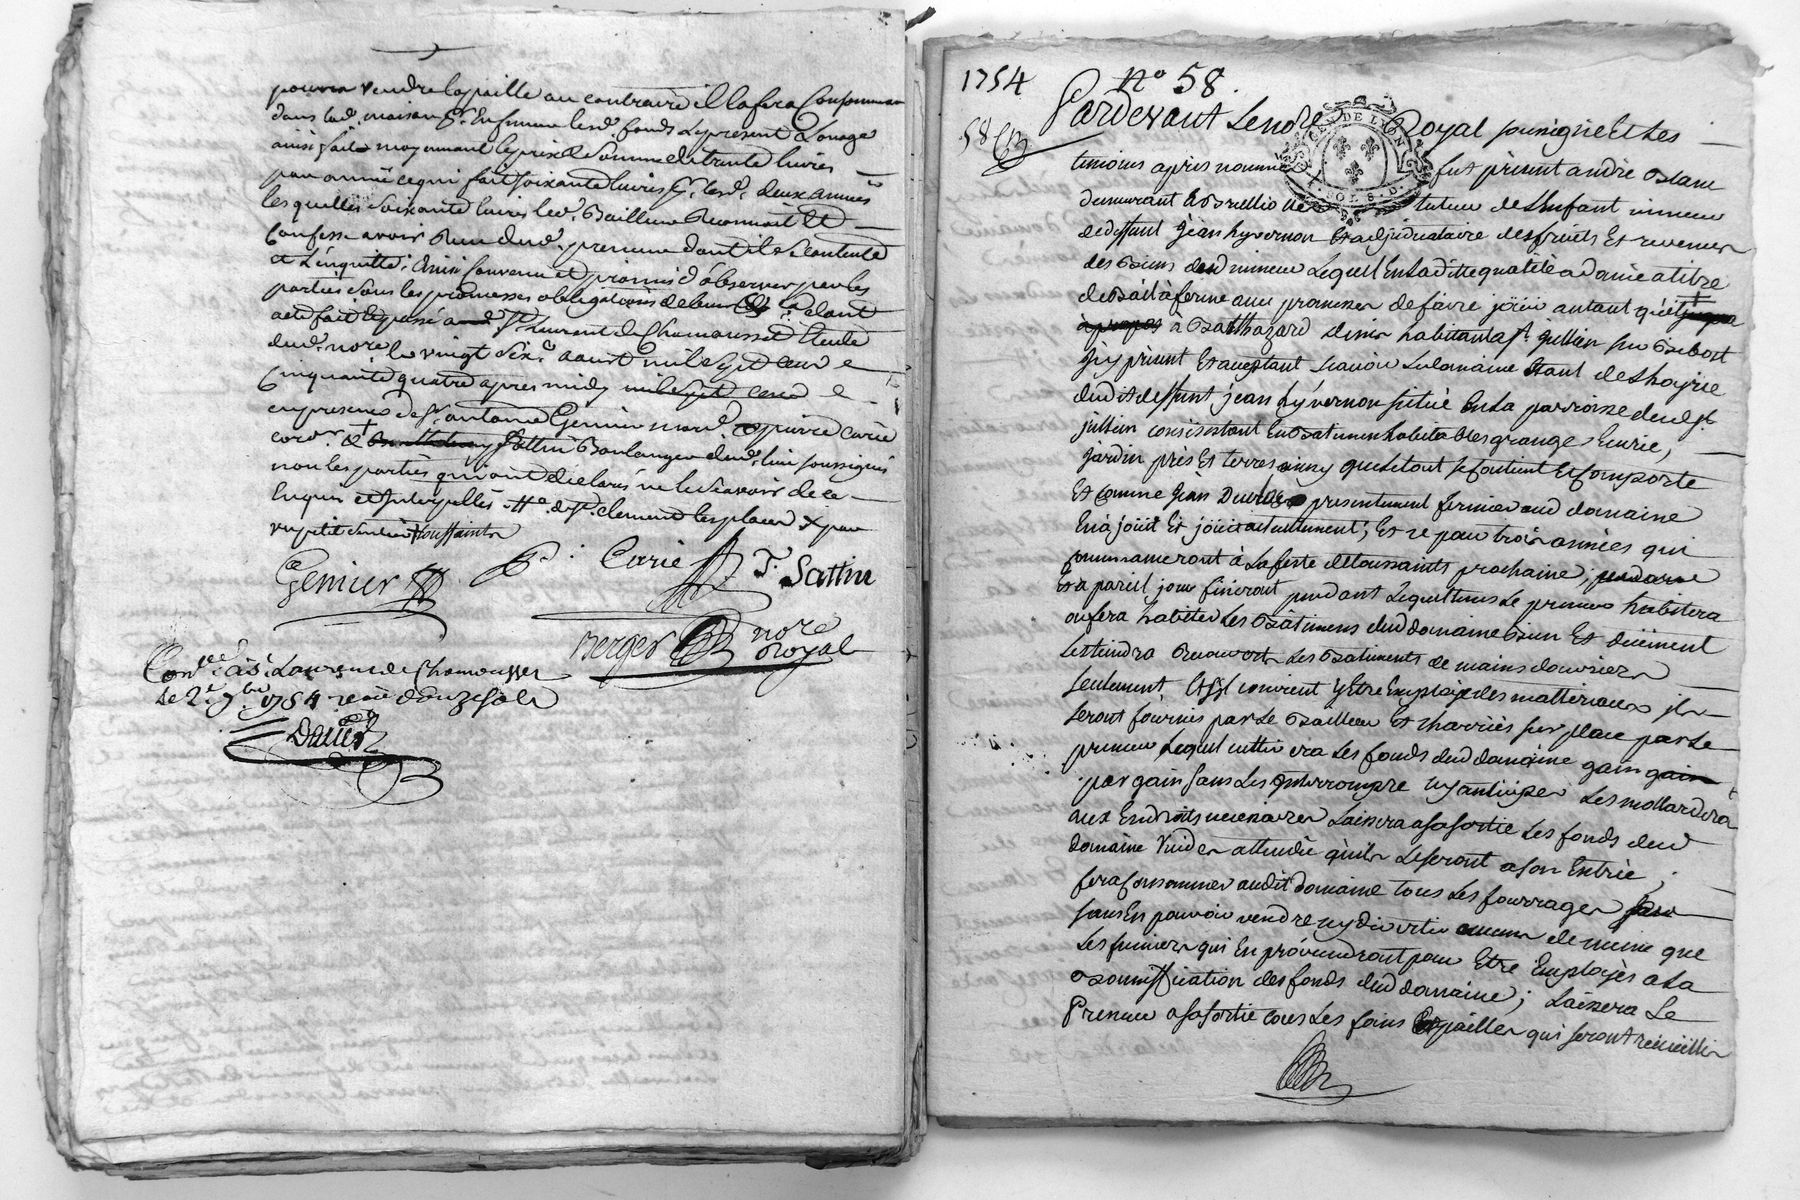 pouvoir vendre la paille au contraire il la fera consommer
dans lad. maison Et fumer lesd. fonds Le present Louage
ainsi fait moyennant le prix et somme de trente livres
par année ce qui fait soixante livres pr. lesd. deux années
les quelles soixante livres led. Bailleur Reconnoit et
Confesse avoir Reçu dud. preneur dont il se contente
et L'enquitte; Ainsi convenu et promis d'observer par les
parties sous les promesses obligations de leurs
acte fait et passé a St. Laurent de Chamousset Etude
dud. nore. le vingt six. aoust mil sept cens
Cinquante quatre apres midy mil sept cens
en presence de sr. antoine Genier mard. et pierre Carie
cord. & Barthelemy Sattin Boulanger dud. lieu soussignés
non les parties qui ont declaré ne le sçavoir de ce
Enquis et Interpellés. de st. clement les places X par
Toussaints
Genier
P. Carie
J. Sattin
Berger nore
Royal
Con.lé à St. Laurens de Chamousset
Le 2e. 7bre. 1754 reçu douze sols
1754 No 58.
58
GEN DE LYON
Pardevant Le nore Royal soussigné Et Les
temoins apres nommés fut present andré
demurant a tuteur de L'Enfant mineur
de deffunt Jean hyvernon Et adjudicataire des fruits Et revenus
des Biens dud mineur Lequel En Laditte qualité a donné a titre
de Bail à ferme avec promesse de faire joüir autant qu'il
à Balthazard habitant a St. Jullien sur Bibost
icy present Et acceptant sçavoir Le domaine Etant de L'hoyrie
dudit deffunt jean hyvernon situé En La parroisse dud. St.
jullien consistant En Batimens habitables grange, Ecurie,
jardin prés Et terres ainsy que Le tout se contient Et Comporte
Et comme Jean presentement fermier aud domaine
En à joüit Et joüit actuellement; Et ce pour trois années qui
commanceront à La feste de Toussaints prochaine; pendant
Et a pareil jour finiront pendant Lequel tems Le preneur habitera
ou fera habiter Les Bâtimens dud domaine Bien Et düement
Les tiendra Recouverts Les Batiments de mains d'ouvriers
seulement, Et s'il convient y Etre Employé des matteriaux ils
seront fournis par Le Bailleur Et charriés sur place par Le
preneur, Lequel cultivera Les fonds dud domaine gain gain
par gain sans Les interrompre ny anticiper Les mollardera
aux Endroits necessaires Laissera a sa sortie Les fonds dud
domaine vuides attendû qu'ils Le seront a son Entrée;
fera Consommer audit domaine tous Les fourrages
sans En pouvoir vendre ny divertir aucuns de même que
Les fumiers qui En proviendront pour Etre Employés a La
Bonniffication des fonds dud domaine; Laissera Le
Preneur a sa sortie tous Les foins Et pailles qui seront recüeillis